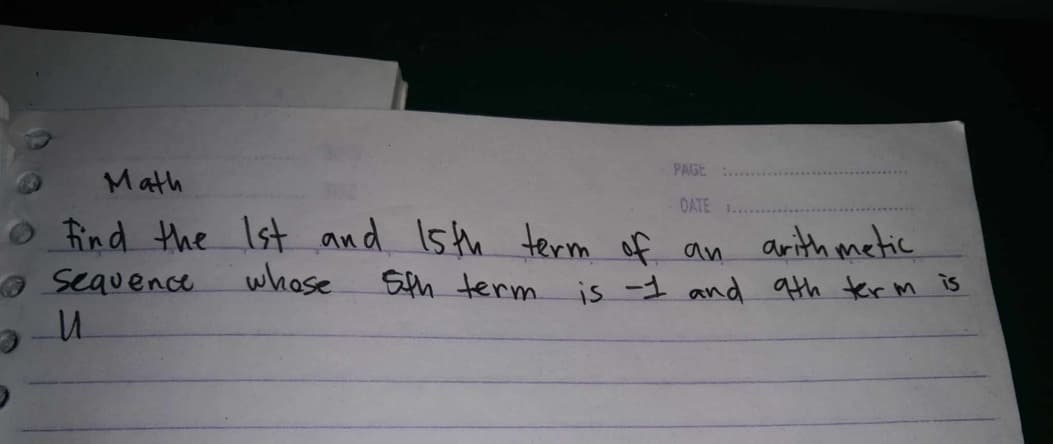 PAGE :
Math
DATE :
find the 1st and 15th term of an arithmetic
sequence whose 5th term is -1 and 9th term is
11